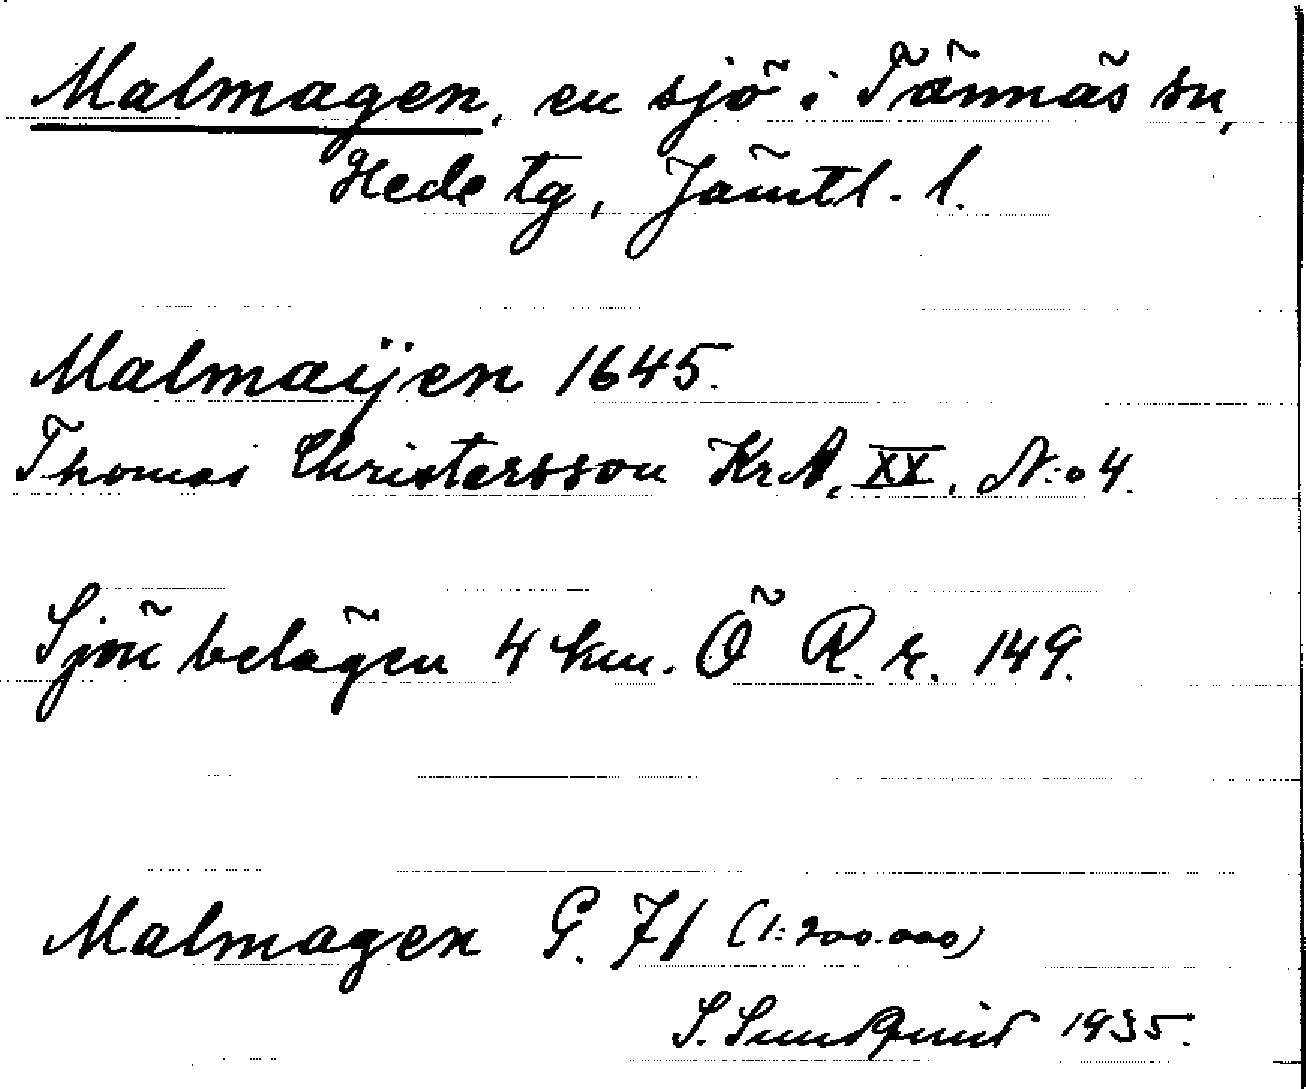 Malmagen, en sjö i Tännäs sn,
Hede tg, Jämtl. l.
Malmaijen 1645.
Thomas Christersson KrA, XX, N:o 4.
Sjön belägen 4 km. Ö R. r. 149.
Malmagen G. 71 (1:200.000)
S. Sundquist 1935.